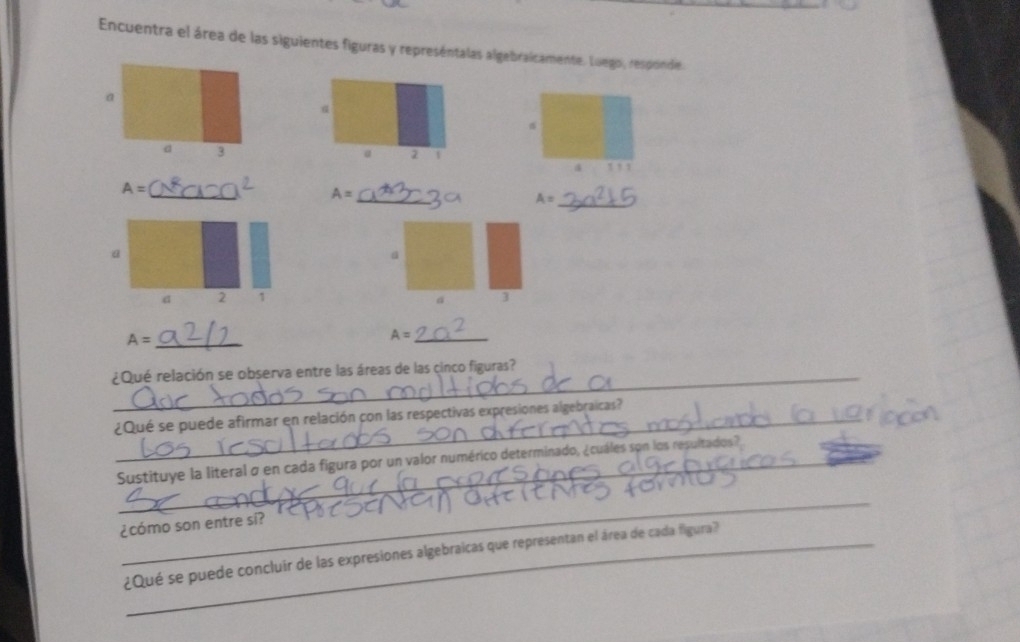 Encuentra el área de las siguientes figuras y represéntalas algebraicamente. Luego, responde.
a
a 3
a
a 2 1
a
a 1 1 1
A = a*a=a²
A = a*3=3a
A = 3a²+5
a
a 2 1
a
a 3
A = a2/2
A = 2a²
¿Qué relación se observa entre las áreas de las cinco figuras?
Que todos son de a
¿Qué se puede afirmar en relación con las respectivas expresiones algebraicas?
Los son la
Sustituye la literal a en cada figura por un valor numérico determinado, ¿cuáles son los resultados?
Se que
¿cómo son entre sí?
¿Qué se puede concluir de las expresiones algebraicas que representan el área de cada figura?